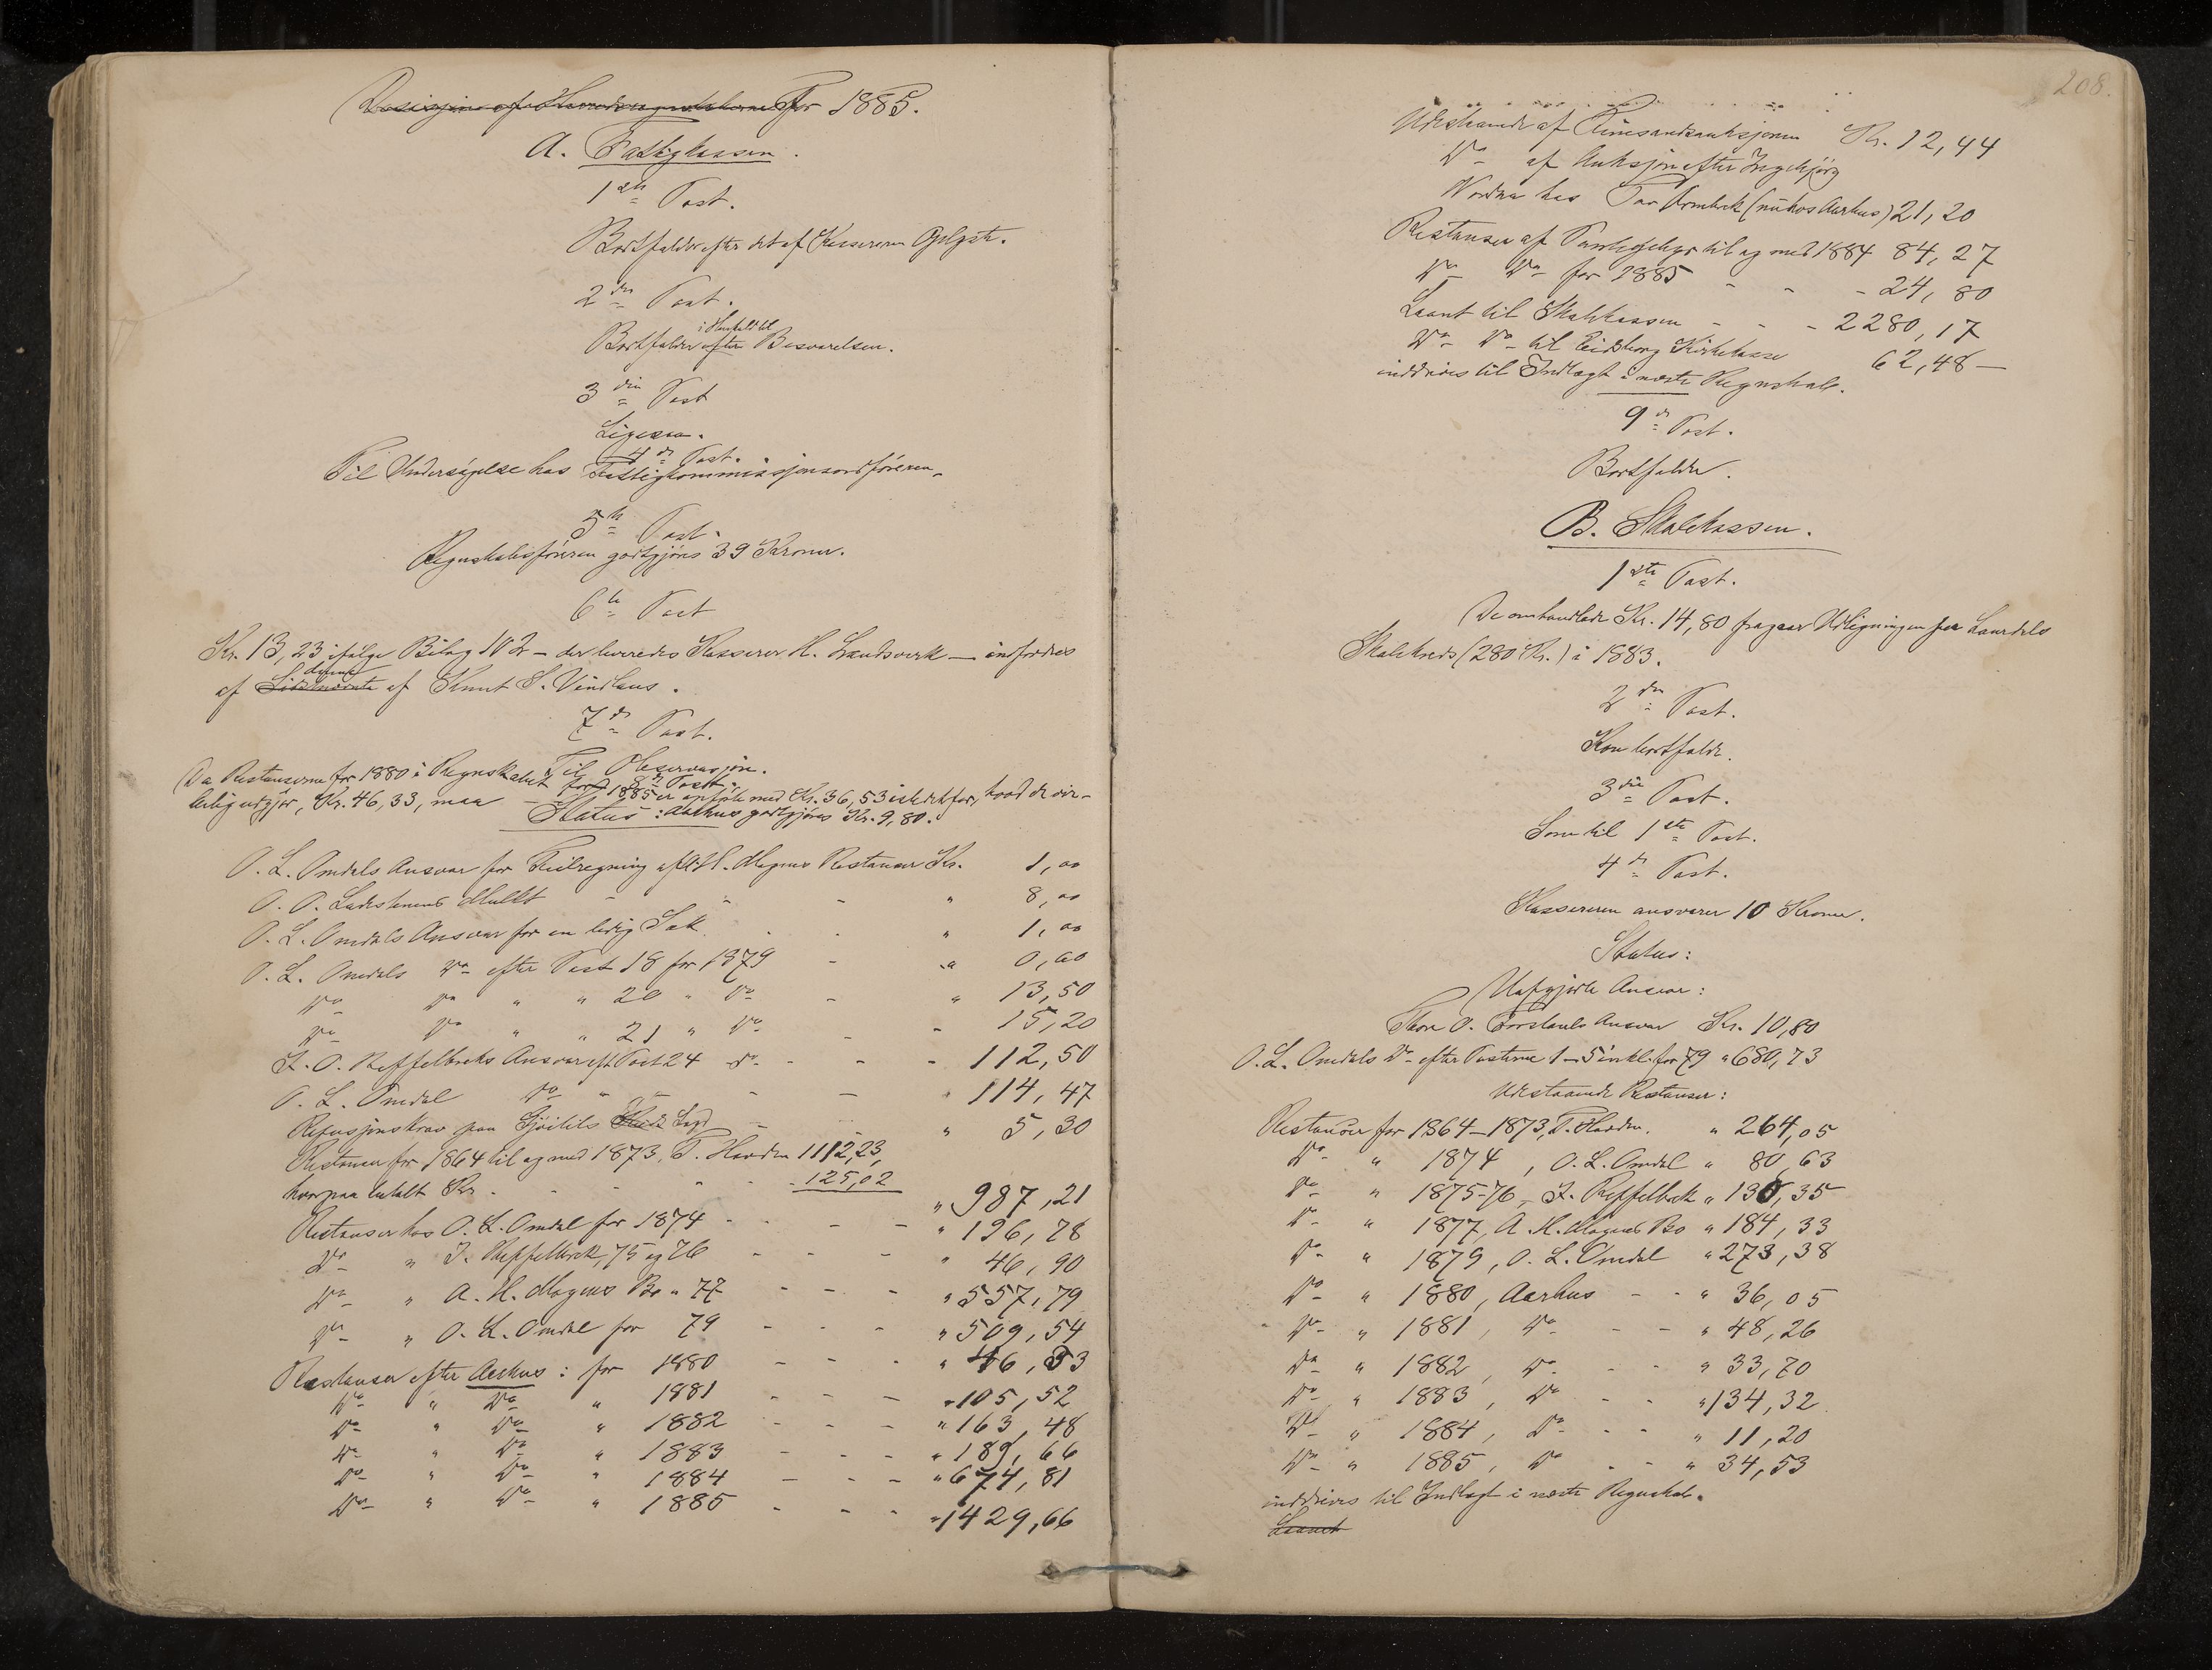 for 1885.
A. Fattigkassen.
1ste Post.
Bortfalder efter det af Kassereren Oplyste.
2den Post.
i Henhold til
Bortfalder efter Besvarelsen.
3die Post
Ligesaa.
4de Post.
Til Undersøgelse hos Fattigkommissjonsordføreren
5te Post.
Regnskabsføreren godtgjøres 39 Kroner.
6te Post
Kr. 13,23 ifølge Bilag 102 – der leveredes Kasserer H. Landsverk – indfordres
denne
af af Knut S. Vindlaus.
7de Post.
Til Observasjon.
8de Post.
Da Restanserne for 1880 i Regnskabet for 1885 er opført med Kr. 36,53 istedetfor, hvad de vir-
kelig udgjør, Kr. 46,33, maa Aarhus godtgjøres Kr. 9,80.
Status:
O. L. Omdals Ansvar for Feilregning af A. H. Mogens Restanser Kr. 1,00
O. O. Ladestenens Mulkt - - - " 8,00
O. L. Omdals Ansvar for en ledig Sæk - - " 1,00
O. L. Omdals Do efter Post 18 for 1879 - " 0,60
Do Do " " 20 " Do - " 13,50
Do Do " " 21 " Do - - 15,20
T. O. Reffelbreks Ansvar eft Post 24 Do - - - 112,50
O. L. Omdal Do " - - - " 114,47
Refusjonskrav paa Gjøitils Lægd - - " 5,30
Restanser for 1864 til og med 1873, T. Hovden 1112,23,
hvorpaa betalt Kr. - - - - 125,02 " 987,21
Restanser hos O. L. Omdal for 1874 - - - - " 196,78
Do " T. Reffelbrek, 75 og 76 - - - " 46,90
Do " A. H. Mogens Bo " 77 - - - " 557,79
Do " O. L. Omdal for 79 - - - " 509,54
Restanser efter Aarhus: for 1880 - - - " 46,33
Do " Do " 1881 - - - " 105,52
Do " Do " 1882 - - - " 163,48
Do " Do " 1883 - - - " 189,66
Do " Do " 1884 - - - " 674,81
Do " Do " 1885 - - - " 1429,66
208.
Udestaaende af Kr. 12,44
Do af Auksjon efter Ingebjørg
Nordna hos Tor Armbek (nu hos Aarhus) 21,20
Restanser af til og med 1884 84,27
Do Do for 1885 - - - 24,80
Laant til Skolekassen - - - 2280,17
Do Do til Eidsborg Kirkekasse 62,48 –
inddrives til Indtægt i næste Regnskab.
9de Post.
Bortfalder.
B. Skolekassen.
1ste Post.
De omhandlede Kr. 14,80 fragaar Udligningen for Laurdals
Skolekreds (280 Kr.) i 1883.
2den Post.
Kan bortfalde.
3die Post.
Som til 1ste Post.
4de Post.
Kassereren ansvarer 10 Kroner.
Status:
Uafgjorte Ansvar:
Thore O. Forslands Ansvar Kr. 10,80
O. L. Omdals Do efter Posterne 1–5 inkl. for 79 " 680,73
Udestaaende Restanser:
Restanser for 1864–1873, T. Hovden. " 264,05
Do " 1874, O. L. Omdal " 80,63
Do " 1875-76 – T. Reffelbrek " 130,35
Do " 1877, A. H. Mogens Bo " 184,33
Do " 1879, O. L. Omdal " 273,38
Do " 1880, Aarhus - - " 36,05
Do " 1881, Do - - " 48,26
Do " 1882, Do - - " 33,70
Do " 1883, Do - - " 134,32
Do " 1884, Do - - " 11,20
Do " 1885, Do - - " 34,53
inddrives til Indtægt i næste Regnskab.
Laant